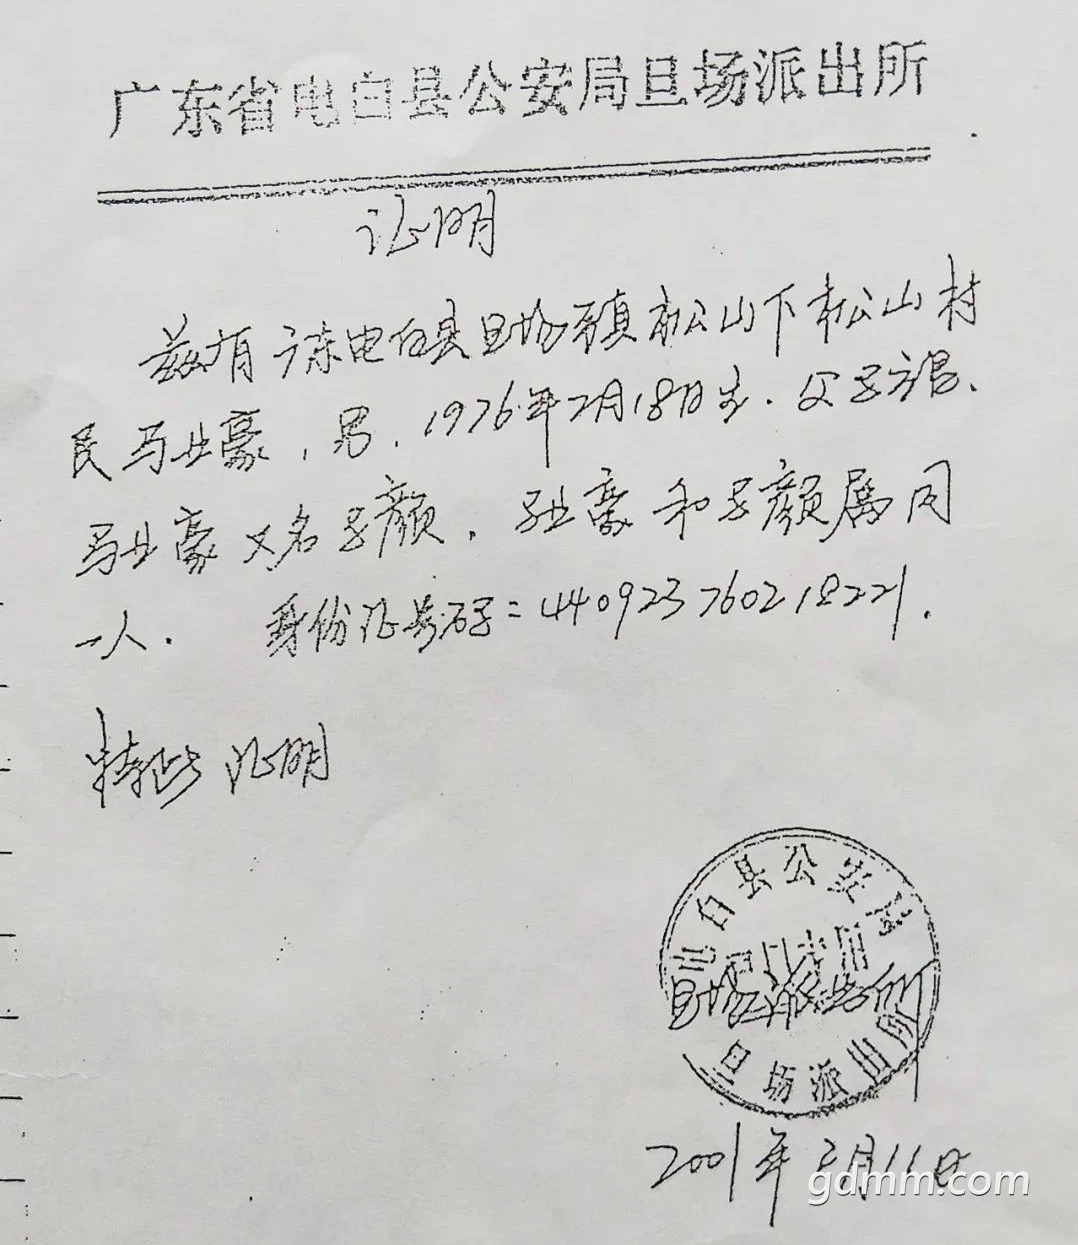 广东省电白县公安局旦场派出所
证明
兹有广东电白县旦场镇松山下松山村
民马业豪,男,1976年2月18日生.父
马业豪又名子颜.业豪和子颜属同
一人. 身份证号码=440923760218221.
特此证明
电白县公安局
户口专用
旦场派出所
旦场派出所
2001年 月11日
gdmm.com